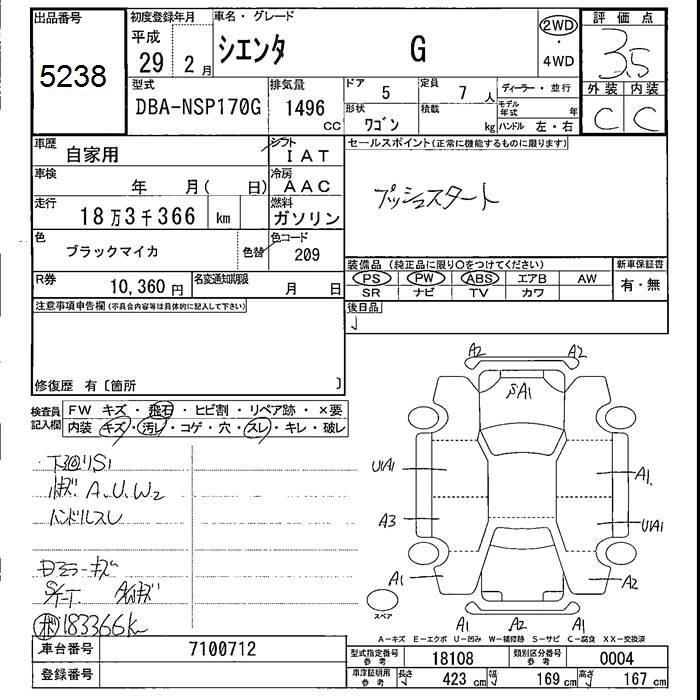 出品番号
5238
初度登録年月
平成
29 2 月
車名・グレード
シエンタ G
2WD
・
4WD
評価点
3.5
外装 内装
C C
型式
DBA-NSP170G
排気量
1496 cc
ドア 5
定員 7 人
形状 ワゴン
積載 kg
ディーラー・並行
モデル年式 年
ハンドル 左・右
車歴 自家用
シフト IAT
車検 年 月( 日)
冷房 AAC
走行 18万3千366 km
燃料 ガソリン
色 ブラックマイカ
色替
色コード 209
R券 10,360 円
名変通知期限 月 日
セールスポイント(正常に機能するものに限ります)
プッシュスタート
装備品 (純正品に限り〇をつけてください)
PS PW ABS エアB AW
SR ナビ TV カワ
新車保証書
有・無
後日品
注意事項申告欄(不具合内容等は具体的に記入して下さい)
修復歴 有〔箇所 〕
検査員
記入欄
FW キズ・飛石・ヒビ割・リペア跡・×要
内装 キズ・汚レ・コゲ・穴・スレ・キレ・破レ
下回りS1
A.U.W2
ハンドルスレ
ミラーキズ
183366km
A2 A2
A1
U1A1 A1
A3 U1A1
A1 A2
A1 A2 A1
スペア
A-キズ E-エクボ U-凹み W-補修跡 S-サビ C-腐食 XX-交換済
車台番号 7100712
登録番号
型式指定番号 参考 18108
類別区分番号 参考 0004
車庫証明用 参考
長さ 423 cm 幅 169 cm 高さ 167 cm